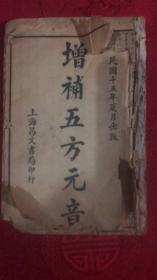 民國十五年夏月出版
增補五方元音
上海昌文書局印行